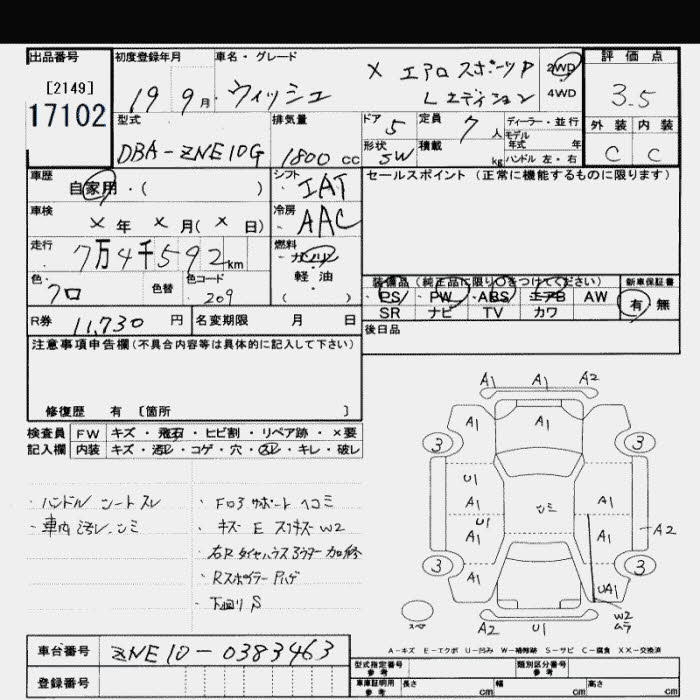 出品番号
[2149]
17102
初度登録年月
19 9月
車名・グレード
ウィッシュ
X エアロスポーツP
Lエディション
2WD
4WD
評価点
3.5
外装 内装
C C
型式
DBA-ZNE10G
排気量
1800 cc
ドア 5
定員 7 人
形状 SW
積載 kg
ディーラー・並行
モデル
年式 年
ハンドル 左・右
車歴
自家用・( )
シフト
IAT
車検
× 年 × 月( × 日)
冷房
AAC
走行
7万4千592km
燃料
ガソリン
軽・油
( )
色
クロ
色替
色コード
209
R券 11,730 円
名変期限 月 日
セールスポイント (正常に機能するものに限ります)
装備品 (純正品に限り○をつけてください)
PS PW ABS エアB AW
SR ナビ TV カワ
新車保証書
有・無
後日品
注意事項申告欄(不具合内容等は具体的に記入して下さい)
修復歴 有 〔箇所 〕
検査員 FW キズ・飛石・ヒビ割・リペア跡・×要
記入欄 内装 キズ・汚レ・コゲ・穴・スレ・キレ・破レ
・ハンドル シートスレ
・車内汚レ、シミ
・Fロアサポートヘコミ
・キズ E スリキズ W2
・右Rタイヤハウスアウター加修
・Rスポイラー Pハゲ
・下回り S
A1 A1 A2
A1
3 3
U1
A1
U1
A1
シミ
A1
A1
A2
3 3
A1
UA1
W2
ムラ
スペア
A2 U1
A-キズ E-エクボ U-凹み W-補修跡 S-サビ C-腐食 XX-交換済
車台番号 ZNE10-0383463
登録番号
型式指定番号
参考
類別区分番号
参考
車庫証明用
参考
長さ cm
幅 cm
高さ cm